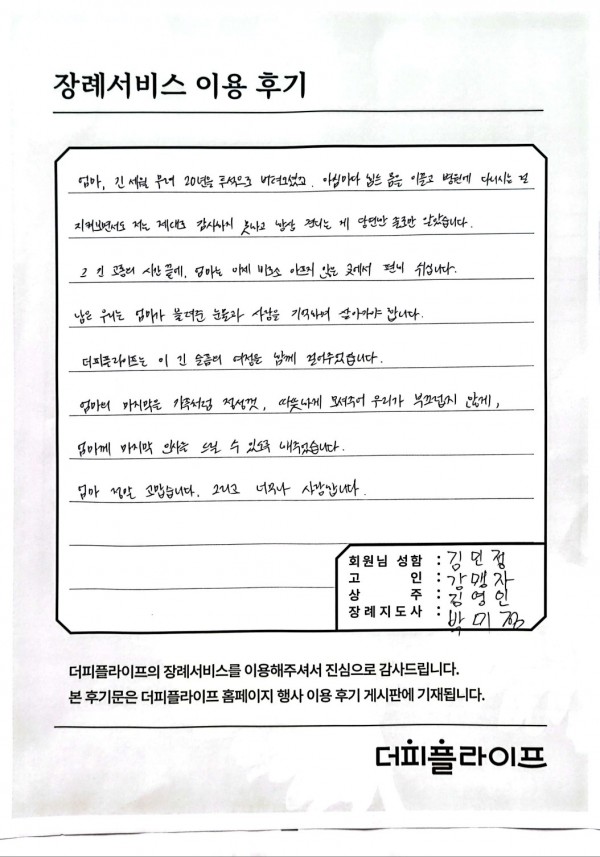 장례서비스 이용 후기
엄마, 긴 세월 무려 20년을 투석으로 버텨오셨고. 아침마다 힘든 몸을 이끌고 병원에 다니시는 걸
지켜보면서도 저는 제대로 감사하지 못하고 난 견디는 게 당연한 줄로만 알았습니다.
그 긴 고통의 시간 끝에, 엄마는 이제 비로소 아프지 않은 곳에서 편히 쉬십니다.
남은 우리는 엄마가 물려준 눈물과 사랑을 기억하며 살아가야 합니다.
더피플라이프는 이 긴 슬픔의 여정을 함께 걸어주었습니다.
엄마의 마지막을 가족처럼 정성껏, 따뜻하게 모셔주어 우리가 부끄럽지 않게,
엄마께 마지막 인사를 드릴 수 있도록 해주었습니다.
엄마 정말 고맙습니다. 그리고 너무나 사랑합니다.
회원님 성함 : 김민정
고 인 : 강맹자
상 주 : 김영인
장례지도사 : 박미정
더피플라이프의 장례서비스를 이용해주셔서 진심으로 감사드립니다.
본 후기문은 더피플라이프 홈페이지 행사 이용 후기 게시판에 기재됩니다.
더피플라이프